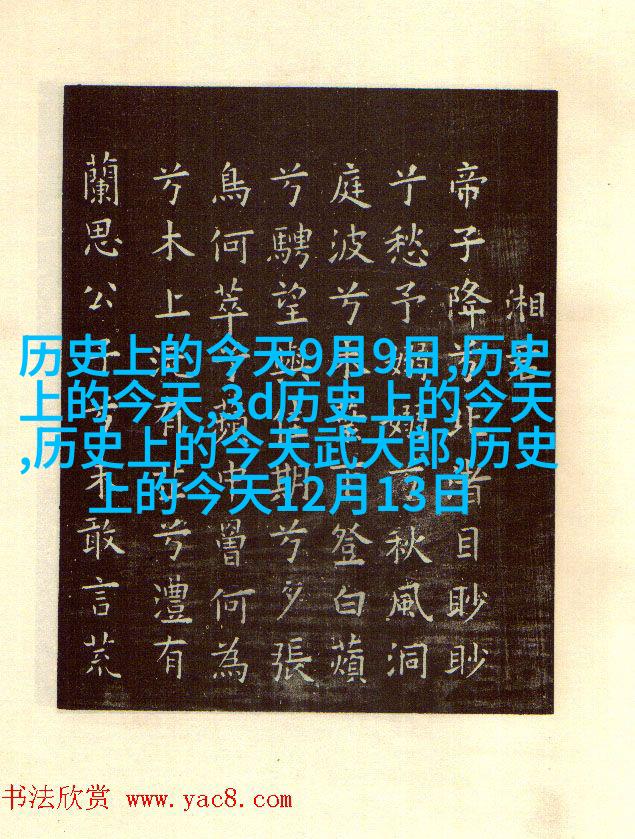 历史上的今天9月9日,历史
上的今天,3d历史上的今天
,历史上的今天武大郎,历史
上的今天12月13日
湘
帝子降兮北渚目眇眇
兮愁予嫋嫋兮秋風洞
庭波兮木葉下登白蘋
兮騁望與佳期兮夕張
鳥何萃兮蘋中罾何為
兮木上沅有芷兮澧有
蘭思公子兮未敢言荒
书法欣赏 www.yac8.com